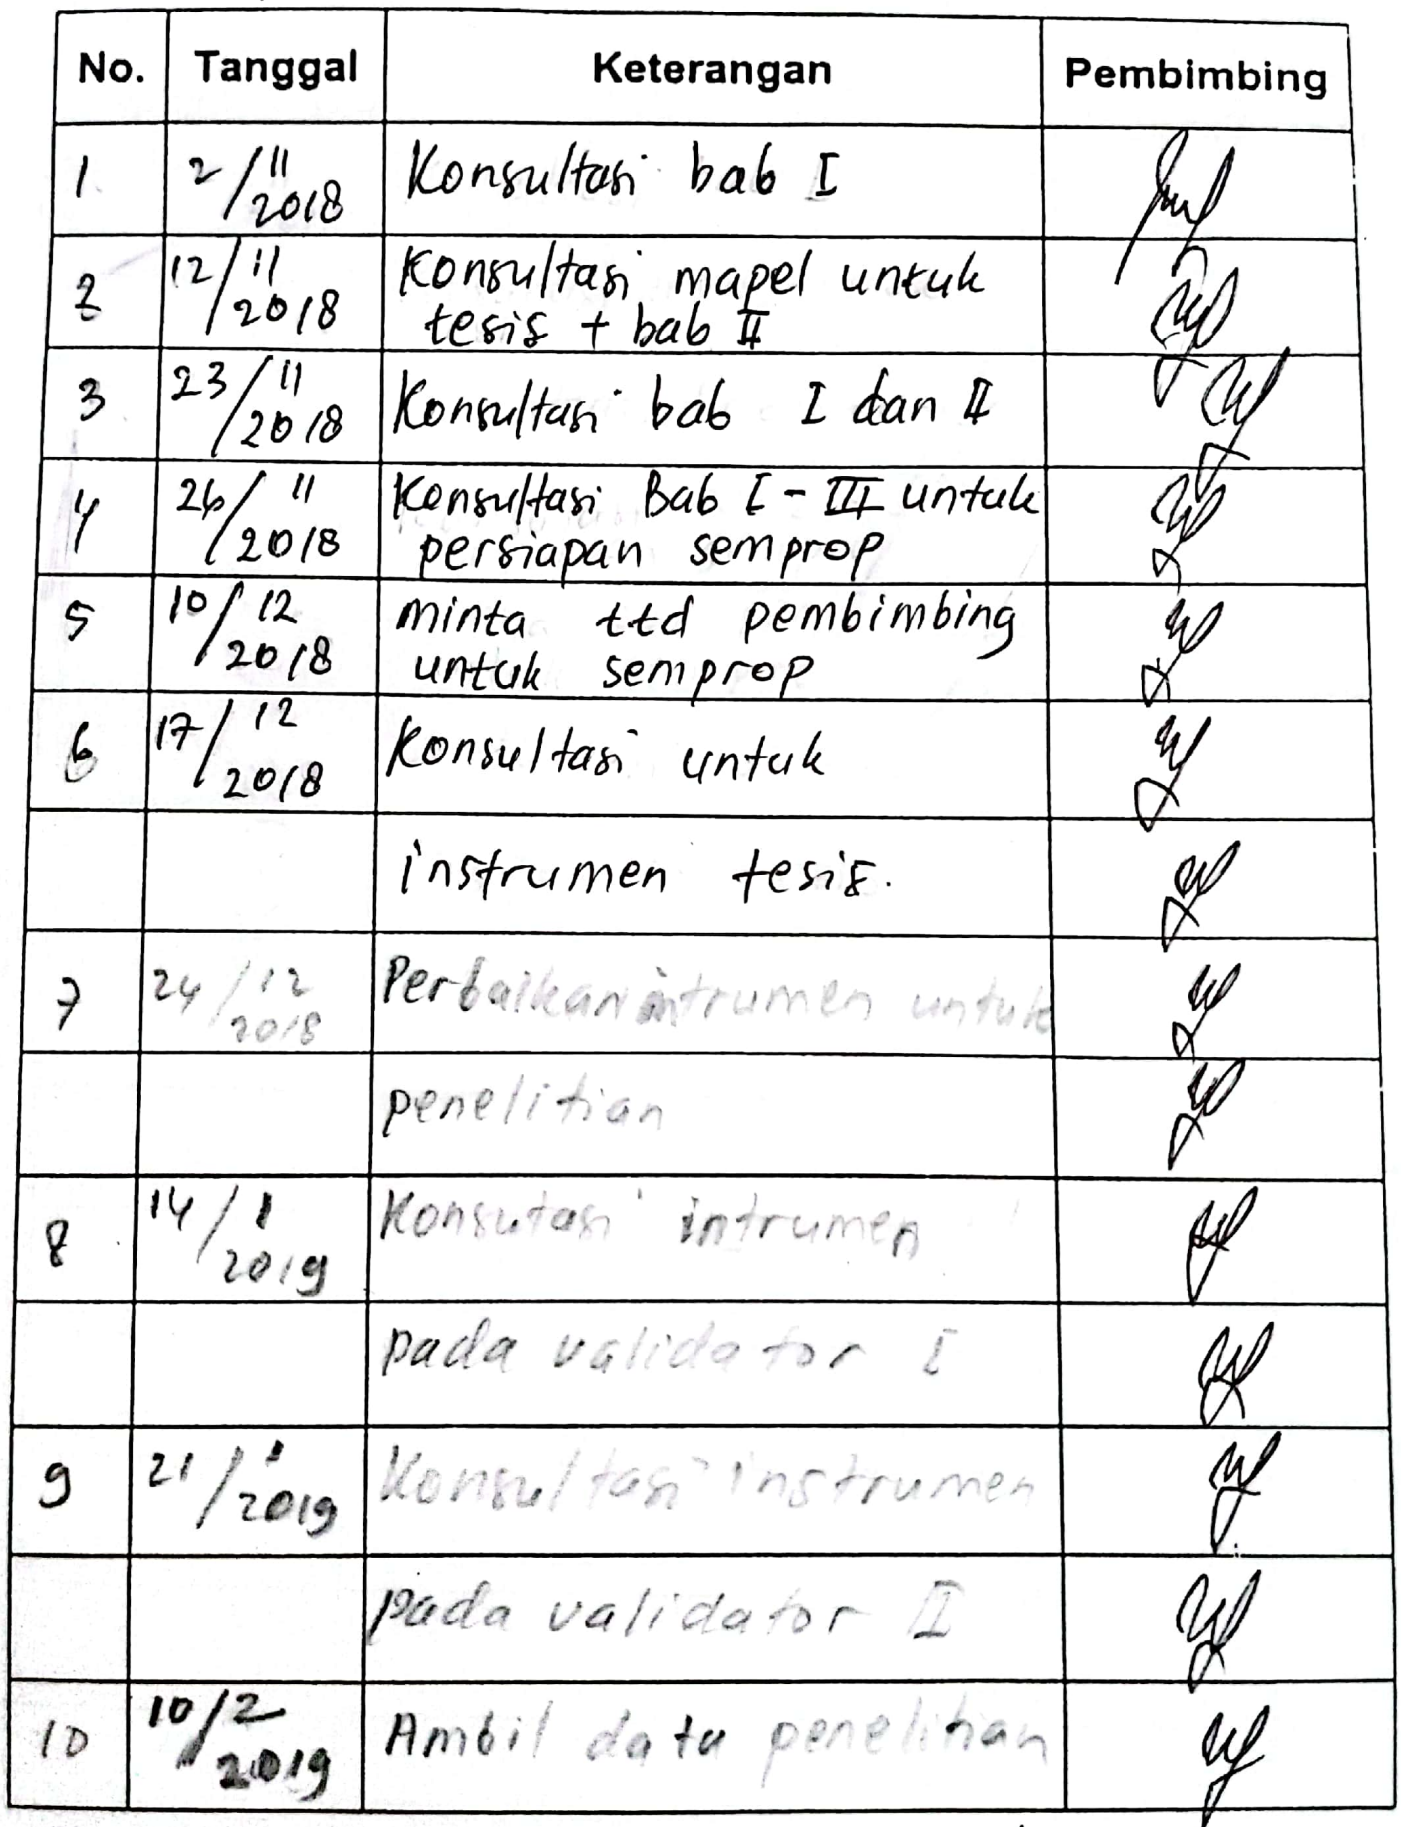 No. Tanggal Keterangan Pembimbing
1 2/11 2018 Konsultasi bab I
2 12/11 2018 Konsultasi mapel untuk
tesis + bab II
3 23/11 2018 Konsultasi bab I dan II
4 26/11 2018 Konsultasi Bab I - III untuk
persiapan semprop
5 10/12 2018 minta ttd pembimbing
untuk semprop
6 17/12 2018 Konsultasi untuk
instrumen tesis.
7 24/12 2018 Perbaikan intrumen untuk
penelitian
8 14/1 2019 Konsutasi intrumen
pada validator I
9 21/1 2019 Konsultasi instrumen
pada validator II
10 10/2 2019 Ambil data penelitian